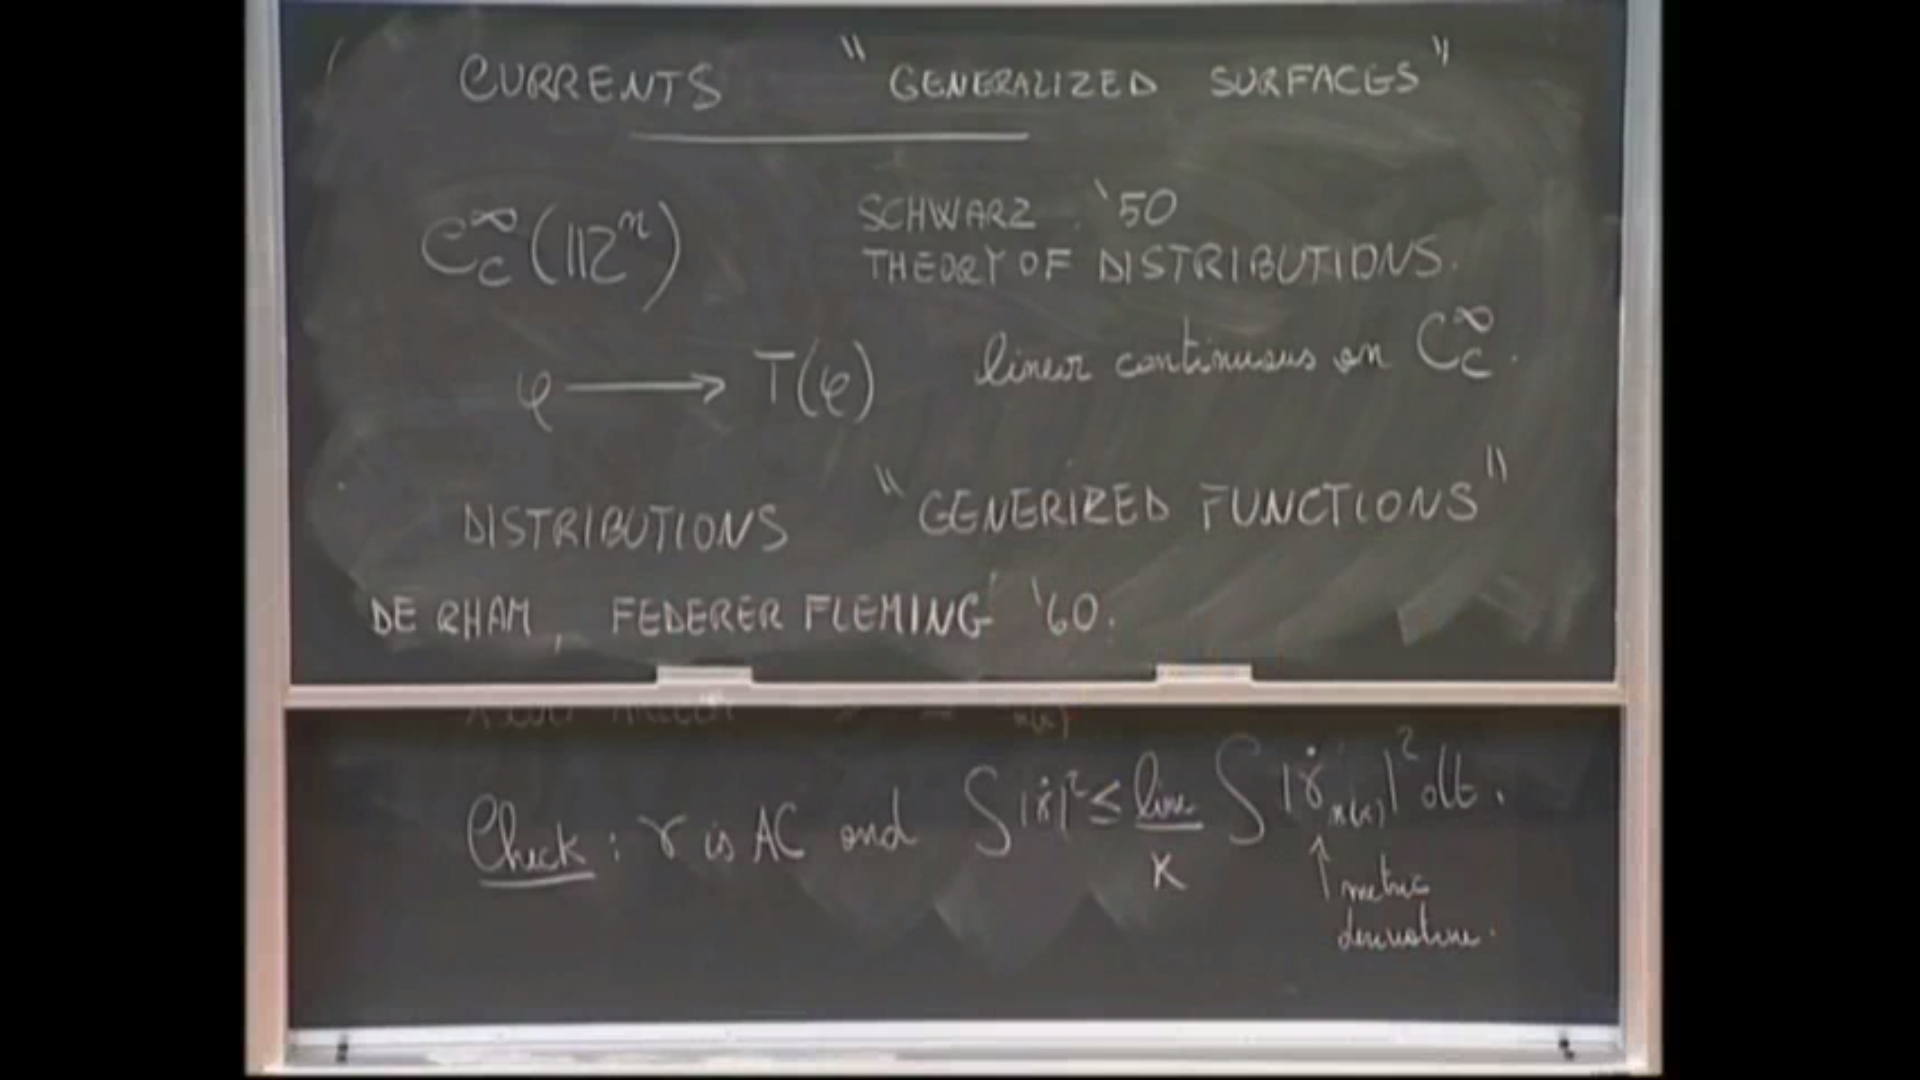 CURRENTS "GENERALIZED SURFACES"
C_c^∞(ℝⁿ) SCHWARZ '50
THEORY OF DISTRIBUTIONS.
φ ⟶ T(φ) linear continuous on C_c^∞.
DISTRIBUTIONS "GENERIZED FUNCTIONS"
DE RHAM, FEDERER FLEMING '60.
n(k)
Check: γ is AC and ∫|γ̇|² ≤ lim ∫|γ̇_n(k)|² dt.
K ↑ metric
derivative.